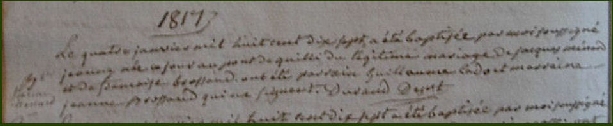 1817
Le quatre janvier mil huit cent dix sept a été baptisée par moi soussigné
jeanne née ce jour au pont de quilli du légitime mariage de jacques
et de françoise brossaud. ont été parrain Guillaume marraine
jeanne Brossaud qui ne signent. Durand Desst
mil huit cent dix sept a été baptisée par moi soussigné